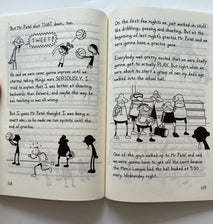 But Mr. Patel shut THAT down, too.
SWEET!
He said we were never gonna improve until we
started taking things more SERIOUSLY. I
tried to explain that I was better at shooting
backwards than forward, and maybe the way he
was teaching us was all wrong.
But I guess Mr. Patel thought I was being a
smart alec, so he made me run sprints until the
end of practice.
On the first few nights we just worked on stuff
like dribbling, passing and shooting. But at the
beginning of last night's practice Mr. Patel said we
were gonna have a practice game.
Everybody was pretty excited that we were finally
gonna get to actually PLAY. But right when we
were about to start a group of men my dad's age
walked into the school hall.
One of the guys walked up to Mr. Patel and said
we were gonna have to get off the court because
the Men's League had the hall booked at 9:30
every Wednesday night.